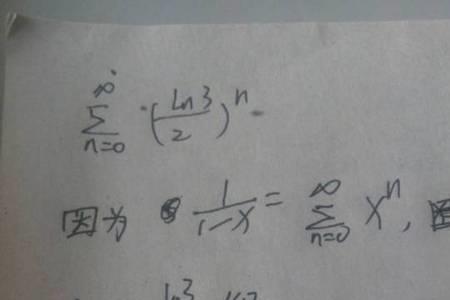 ∑_{n=0}^{∞} (ln3/2)^n
因为 1/(1-x) = ∑_{n=0}^{∞} x^n,
ln3